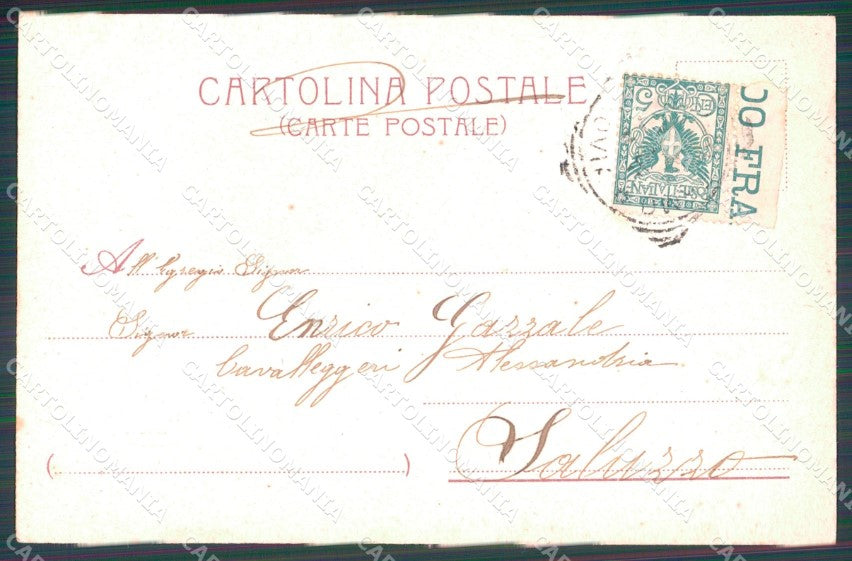 CARTOLINA POSTALE
(CARTE POSTALE)
5
POSTE ITALIANE
DO FRA
All'Egregio Signor
Signor Enrico Gazzale
Cavalleggeri Alessandria
Saluzzo
( )
CARTOLINOMANIA